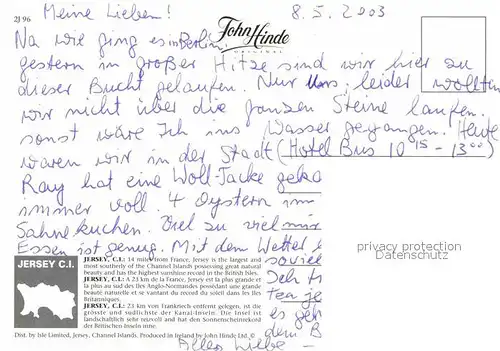 2J 96
Meine Lieben!
8. 5. 2003
John Hinde
ORIGINAL
Na wie ging es in Berlin
gestern in großer Hitze sind wir hier zu
dieser Bucht gelaufen. Nur uns, leider wollten
wir nicht über die ganzen Steine laufen.
sonst wäre Ich ins Wasser gegangen. Heute
waren wir in der Stadt (Hotel Bus 10 15 - 13 00)
Ray hat eine Woll-Jacke geka
immer voll. 4 Oystern im
Sahnekuchen. Viel zu viel mir
Essen ist genug. Mit dem Wetter
soviel
Ich
tea je
es ge
dem B
Alles Liebe -
privacy protection
Datenschutz
JERSEY C.I.
JERSEY, C.I.: 14 miles from France, Jersey is the largest and
most southerly of the Channel Islands possessing great natural
beauty and has the highest sunshine record in the British Isles.
JERSEY, C.I.: A 23 km de la France, Jersey est la plus grande et
la plus au sud des Iles Anglo-Normandes possédant une grande
beauté naturelle et se vantant du record du soleil dans les Iles
Britanniques.
JERSEY, C.I.: 23 km von Frankreich entfernt gelegen, ist die
grösste und südlichste der Kanal-Inseln. Die Insel ist
landschaftlich sehr reizvoll und hat den Sonnenscheinrekord
der Britischen Inseln inne.
Dist. by Isle Limited, Jersey, Channel Islands. Produced in Ireland by John Hinde Ltd. ©